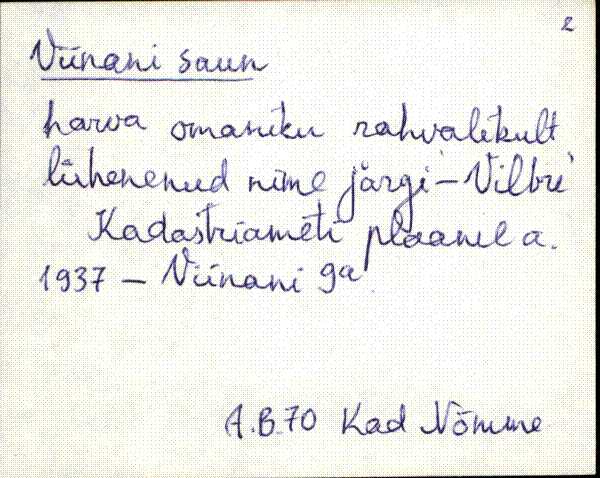 2
Viinani saun
harva omaniku rahvalikult
lühenenud nime järgi – Vilbre
Kadastriameti plaanil a.
1937 – Viinani 9a
A.B.70 Kad Nõmme